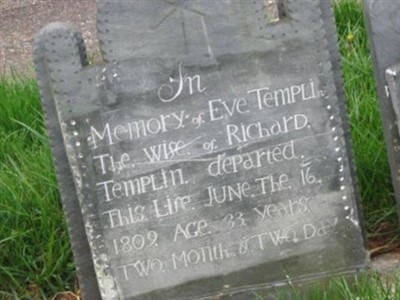 In
Memory. of Eve Templin
The. wise of. Richard.
Templin. departed.
This Life. June The. 16.
1802 Age. 33 years.
Two. Month. & Two. Day